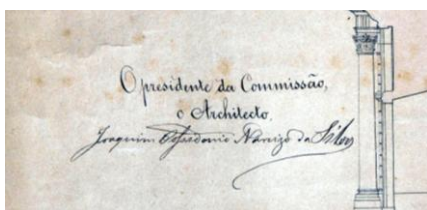 O presidente da Commissão,
o Architecto,
Joaquim Possidonio Narcizo da Silva